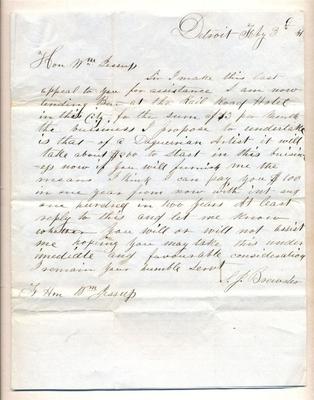 Detroit Feby 3d
Hon Wm Jessup
Sir I make this last
appeal to you for assistance I am now
tending Bar at the Rail Road Hotel
in this City for the sum of $3 per
the business I propose to undertake
is that of a Daguerian Artist it will
take about $200 to start in this busin-
ess now if you will furnish me the
means I think I can pay you $100
in one year from now with int and
one hundred in two years At least
reply to this and let me know
whether you will or will not assist
me hoping you may take this under
imediate and favourable consideration
I remain your humble Servt
Brewster
To Hon Wm Jessup